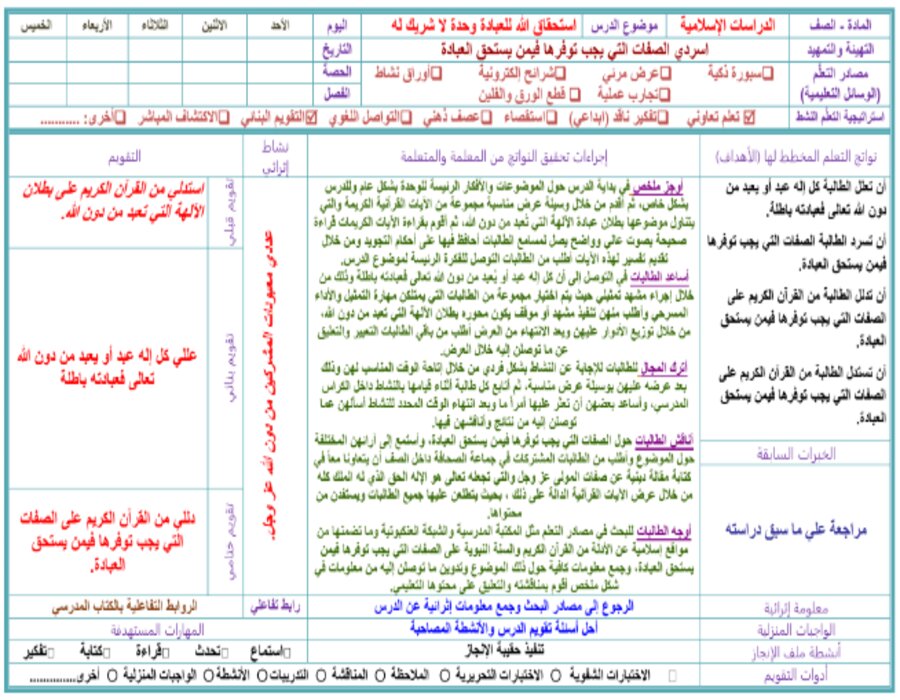 المادة - الصف
الدراسات الإسلامية
موضوع الدرس
استحقاق الله للعبادة وحدة لا شريك له
اليوم
الأحد
الاثنين
الثلاثاء
الأربعاء
الخميس
التهيئة والتمهيد
اسردي الصفات التي يجب توفرها فيمن يستحق العبادة
التاريخ
مصادر التعلم
(الوسائل التعليمية)
□سبورة ذكية □عرض مرئي □شرائح إلكترونية □أوراق نشاط
□تجارب عملية □ قطع الورق والفلين
الحصة
الفصل
استراتيجية التعلم النشط
☑ تعلم تعاوني □تفكير ناقد (ابداعي) □استقصاء □عصف ذهني □التواصل اللغوي ☑التقويم البنائي □الاكتشاف المباشر □أخرى: ...........
نواتج التعلم المخطط لها (الأهداف)
إجراءات تحقيق النواتج من المعلمة والمتعلمة
نشاط
إثرائي
التقويم
أن تعلل الطالبة كل إله عبد أو يعبد من
دون الله تعالى فعبادته باطلة.
أن تسرد الطالبة الصفات التي يجب توفرها
فيمن يستحق العبادة.
أن تدلل الطالبة من القرآن الكريم على
الصفات التي يجب توفرها فيمن يستحق
العبادة.
أن تستدل الطالبة من القرآن الكريم على
الصفات التي يجب توفرها فيمن يستحق
العبادة.
الخبرات السابقة
مراجعة علي ما سبق دراسته
أوجز ملخص في بداية الدرس حول الموضوعات والأفكار الرئيسة للوحدة بشكل عام وللدرس
بشكل خاص، ثم أقدم من خلال وسيلة عرض مناسبة مجموعة من الآيات القرآنية الكريمة والتي
يتناول موضوعها بطلان عبادة الآلهة التي تُعبد من دون الله، ثم أقوم بقراءة الآيات الكريمات قراءة
صحيحة بصوت عالي وواضح يصل لمسامع الطالبات أحافظ فيها على أحكام التجويد ومن خلال
تقديم تفسير لهذه الآيات أطلب من الطالبات التوصل للفكرة الرئيسة لموضوع الدرس.
أساعد الطالبات في التوصل إلى أن كل إله عبد أو يُعبد من دون الله تعالى فعبادته باطلة وذلك من
خلال إجراء مشهد تمثيلي حيث يتم اختيار مجموعة من الطالبات التي يمتلكن مهارة التمثيل والأداء
المسرحي وأطلب منهن تنفيذ مشهد أو موقف يكون محوره بطلان الآلهة التي تعبد من دون الله،
من خلال توزيع الأدوار عليهن وبعد الانتهاء من العرض أطلب من باقي الطالبات التعبير والتعليق
عن ما توصلن إليه خلال العرض.
أترك المجال للطالبات للإجابة عن النشاط بشكل فردي من خلال إتاحة الوقت المناسب لهن وذلك
بعد عرضه عليهن بوسيلة عرض مناسبة، ثم أتابع كل طالبة أثناء قيامها بالنشاط داخل الكراس
المدرسي، وأساعد بعضهن أن تعثر عليها أمراً ما وبعد انتهاء الوقت المحدد للنشاط أسألهن عما
توصلن إليه من نتائج وأناقشهن فيها.
أناقش الطالبات حول الصفات التي يجب توفرها فيمن يستحق العبادة، وأستمع إلى آرائهن المختلفة
حول الموضوع وأطلب من الطالبات المشتركات في جماعة الصحافة داخل الصف أن يتعاونا معاً في
كتابة مقالة دينية عن صفات المولى عز وجل والتي تجعله تعالى هو الإله الحق الذي له الملك كله
من خلال عرض الآيات القرآنية الدالة على ذلك ، بحيث يتطلعن عليها جميع الطالبات ويستفدن من
محتواها.
أوجه الطالبات للبحث في مصادر التعلم مثل المكتبة المدرسية والشبكة العنكبوتية وما تتضمنها من
مواقع إسلامية عن الأدلة من القرآن الكريم والسنة النبوية على الصفات التي يجب توفرها فيمن
يستحق العبادة، وجمع معلومات كافية حول ذلك الموضوع وتدوين ما توصلن إليه من معلومات في
شكل ملخص أقوم بمناقشته والتعليق على محتوها التعليمي.
عددي معبودات المشركين من دون الله عز وجل.
تقويم قبلي
استدلي من القرآن الكريم على بطلان
الآلهة التي تعبد من دون الله.
تقويم بنائي
عللي كل إله عبد أو يعبد من دون الله
تعالى فعبادته باطلة
تقويم ختامي
دللي من القرآن الكريم على الصفات
التي يجب توفرها فيمن يستحق
العبادة.
معلومة إثرائية
الرجوع إلى مصادر البحث وجمع معلومات إثرائية عن الدرس
رابط تفاعلي
الروابط التفاعلية بالكتاب المدرسي
الواجبات المنزلية
أحل أسئلة تقويم الدرس والأنشطة المصاحبة
المهارات المستهدفة
أنشطة ملف الإنجاز
تنفيذ حقيبة الإنجاز
□استماع □تحدث □قراءة □كتابة □تفكير
أدوات التقويم
□ الاختبارات الشفوية ○ الاختبارات التحريرية ○ الملاحظة ○ المناقشة ○ التدريبات○ الأنشطة○ الواجبات المنزلية ○ أخرى...............